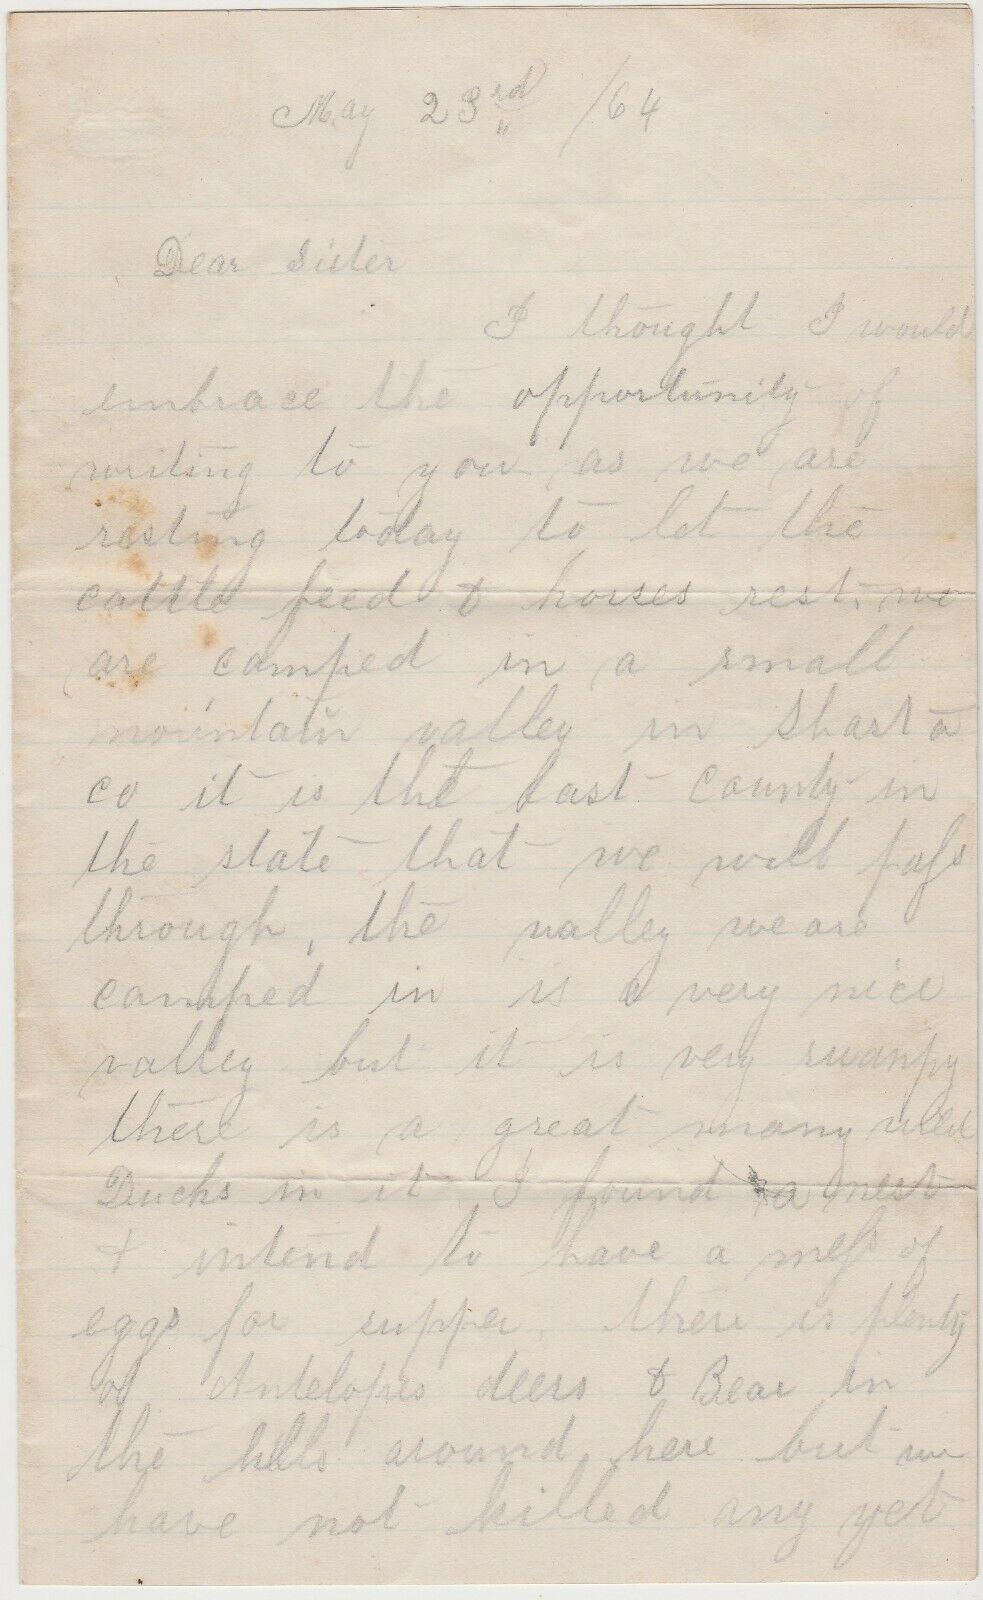 May 23rd /64
Dear Sister
I thought I would
embrace the opportunity of
writing to you as we are
resting today to let the
cattle feed & horses rest, we
are camped in a small
mountain valley in Shasta
co it is the last County in
the state that we will pass
through, the valley we are
camped in is a very nice
valley but it is very swanpy
there is a great many wild
Ducks in it I found a nest
& intend to have a mess of
eggs for supper, there is plenty
of Antelopes deers & Bear in
the hills around here but we
have not killed any yet